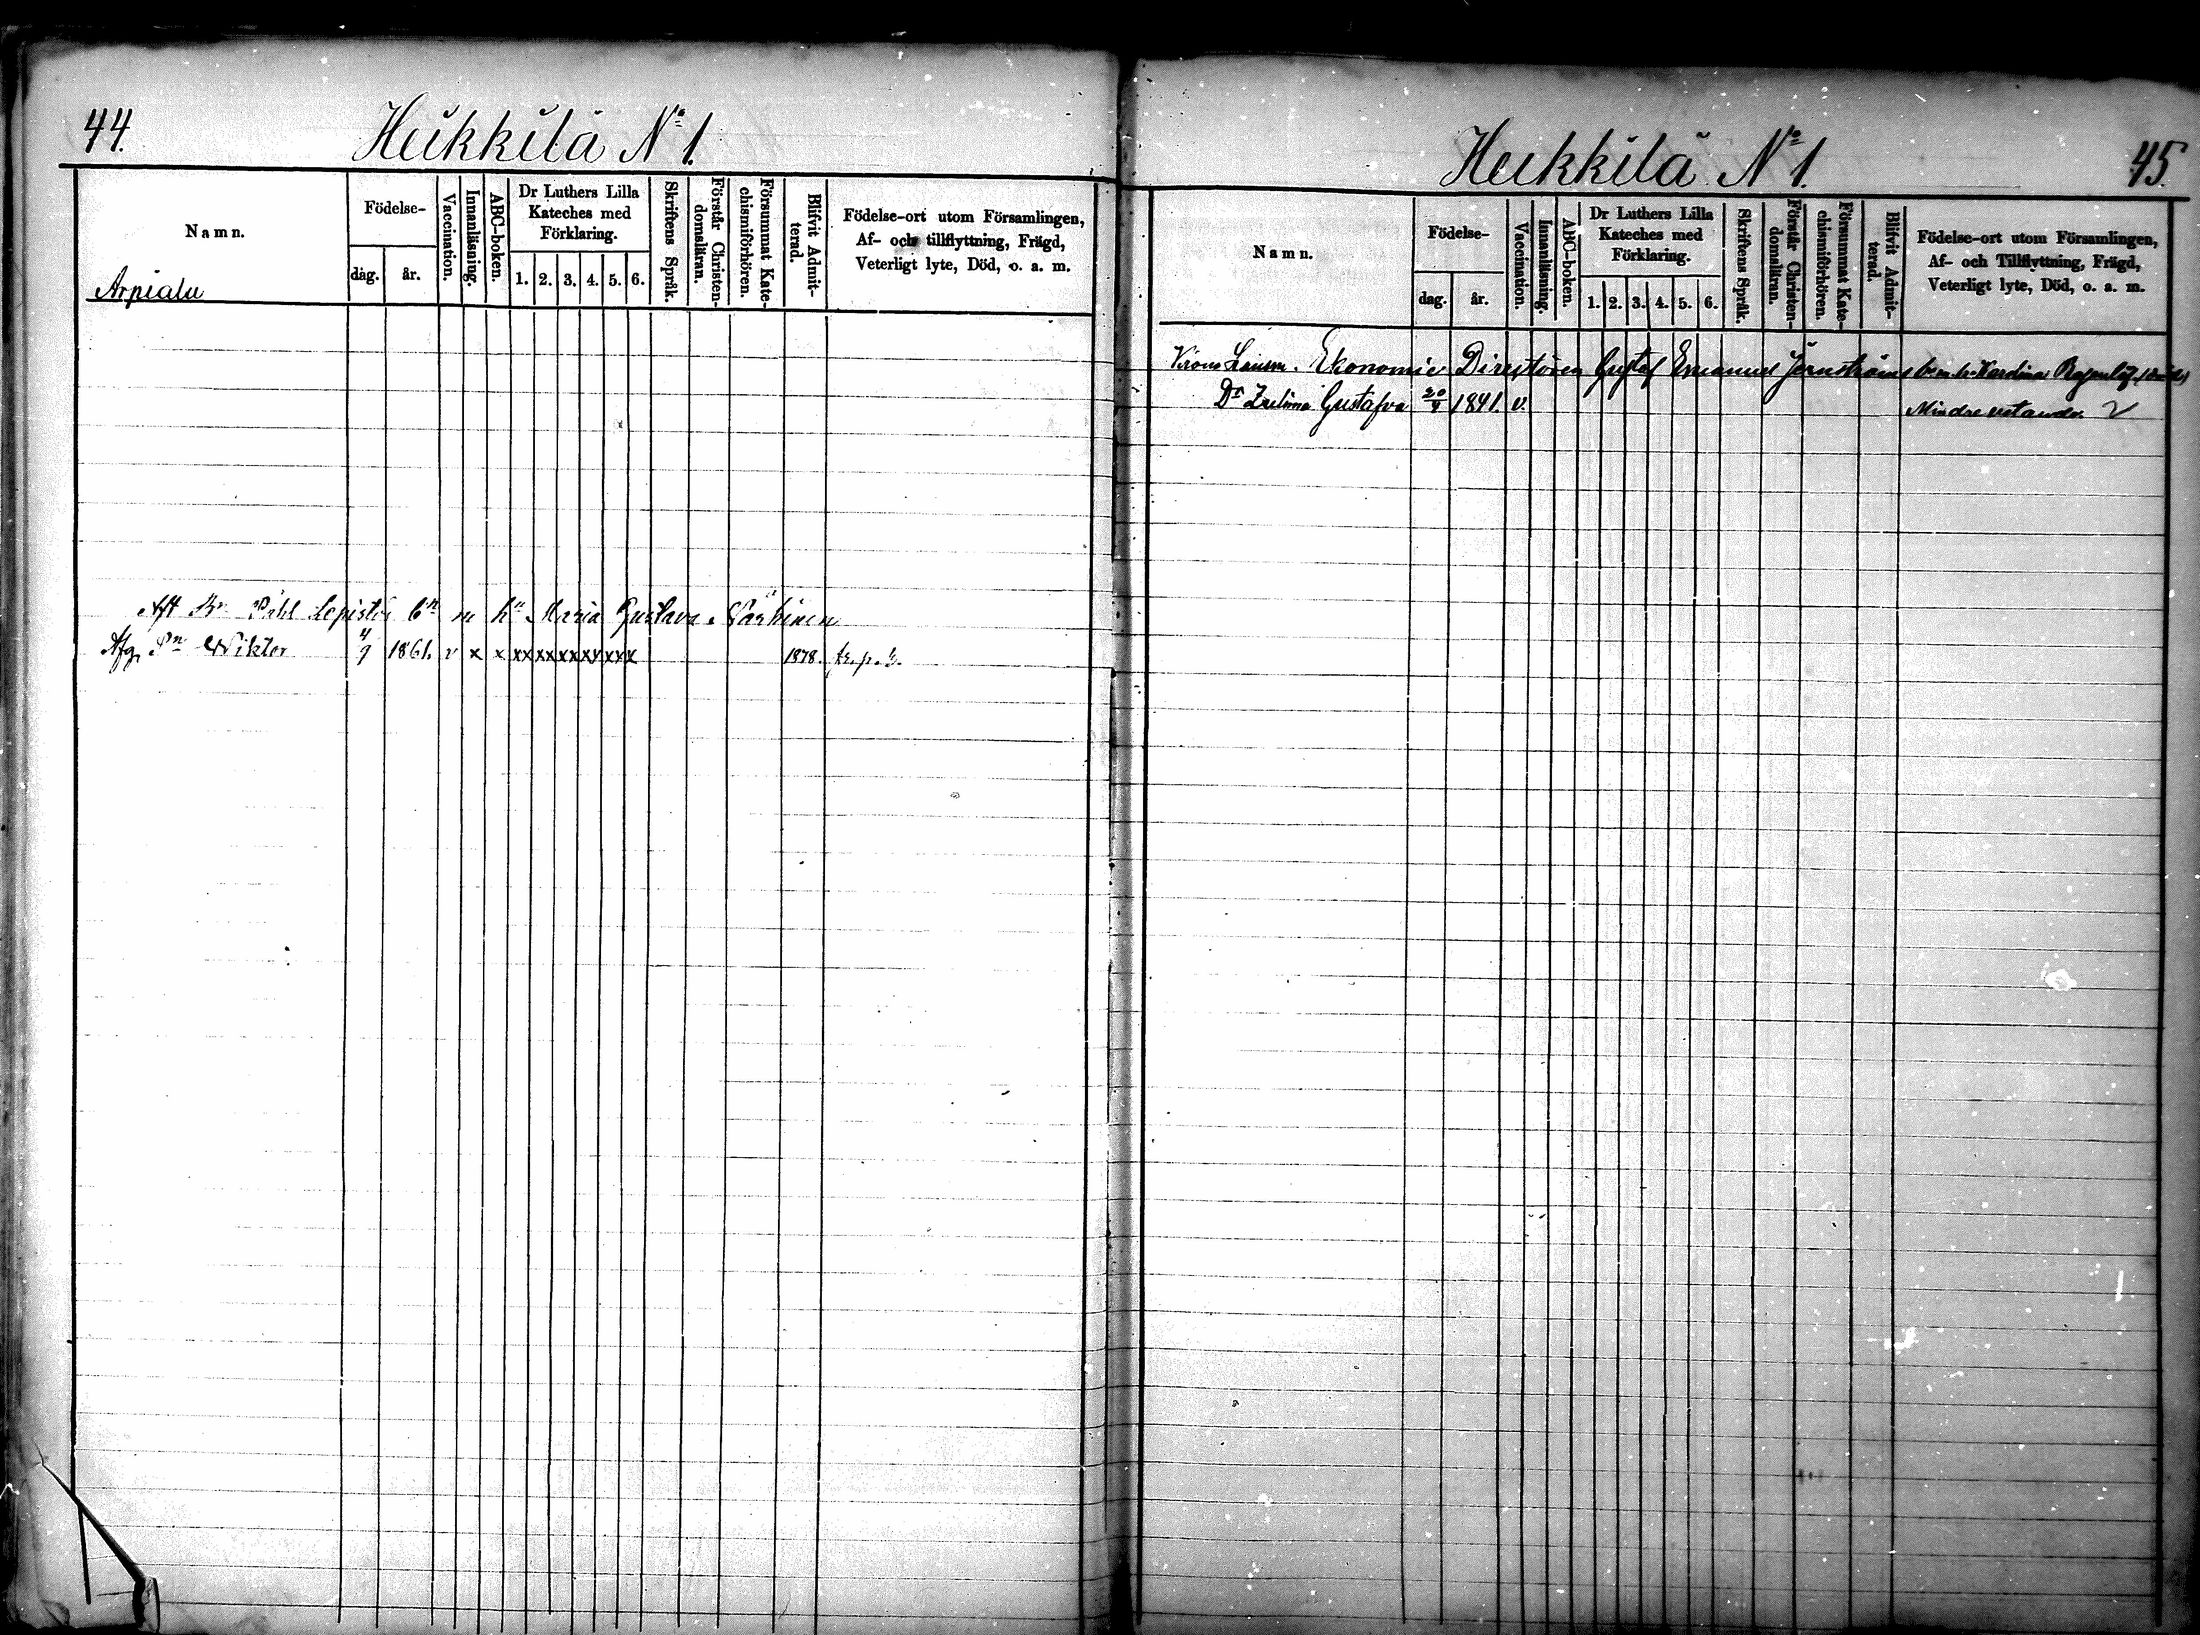 44.
Heikkilä No 1.
Namn.
Födelse-
dag. år.
Vaccination.
Innanläsning.
ABC-boken.
Dr Luthers Lilla
Kateches med
Förklaring.
1. 2. 3. 4. 5. 6.
Skriftens Språk.
Förstår Christen-
domsläran.
Försummat Kate-
chismiförhören.
Blifvit Admit-
terad.
Födelse-ort utom Församlingen,
Af- och tillflyttning, Frägd,
Veterligt lyte, Död, o. a. m.
Arpiala
Aft Påhl Lepistö bn m hn Maria Gustava
Afg. Sn Wiktor 4/9 1861. v x x xx xx xx xx xxx 1878.
45.
Heikkilä No 1.
Namn.
Födelse-
dag. år.
Vaccination.
Innanläsning.
ABC-boken.
Dr Luthers Lilla
Kateches med
Förklaring.
1. 2. 3. 4. 5. 6.
Skriftens Språk.
Förstår Christen-
domsläran.
Försummat Kate-
chismiförhören.
Blifvit Admit-
terad.
Födelse-ort utom Församlingen,
Af- och Tillflyttning, Frägd,
Veterligt lyte, Död, o. a. m.
Ekonomie Direktören Gustaf Emanuel Jernströms b. m. h.
Dr Gustafva 20/4 1841. v. Mindre vetande.